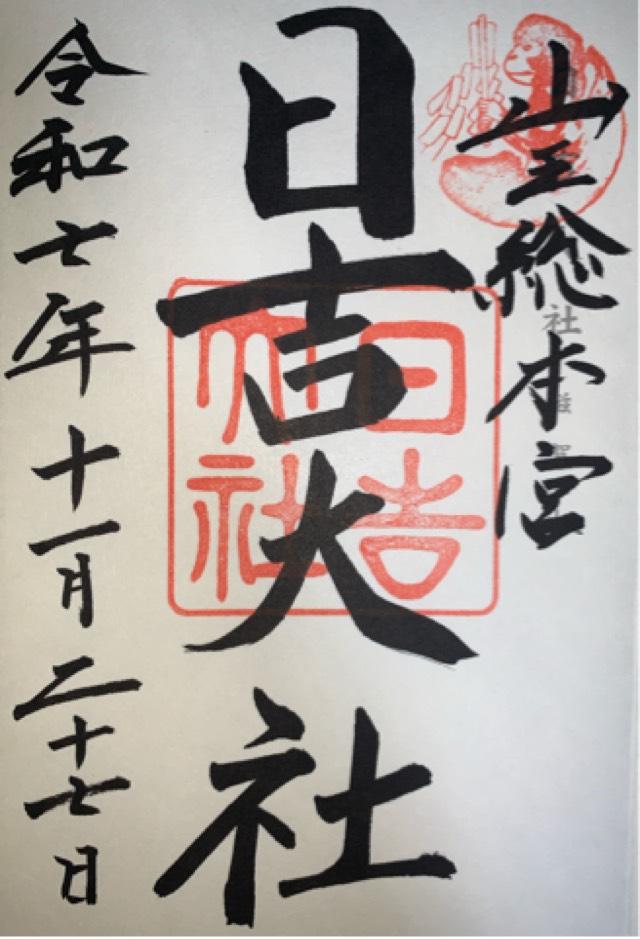 山王総本宮
日吉大社
日吉
大社
令和七年十一月二十七日